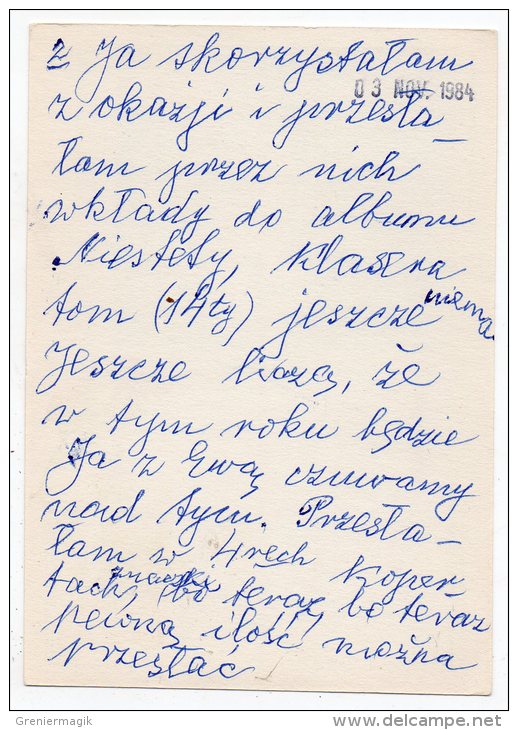 2 Ja skorzystałam
03 NOV. 1984
z okazji i przesła-
łam przez nich
wkłady do albumu
Niestety, klasera
tom (14ty) jeszcze niema
Jeszcze liczą, że
w tym roku będzie
Ja z Ewą czuwamy
nad tym. Przesła-
łam w 4rech koper-
tach, znaczki bo teraz, bo teraz
pewną ilość można
przesłać
Greniermagik
www.delcampe.net